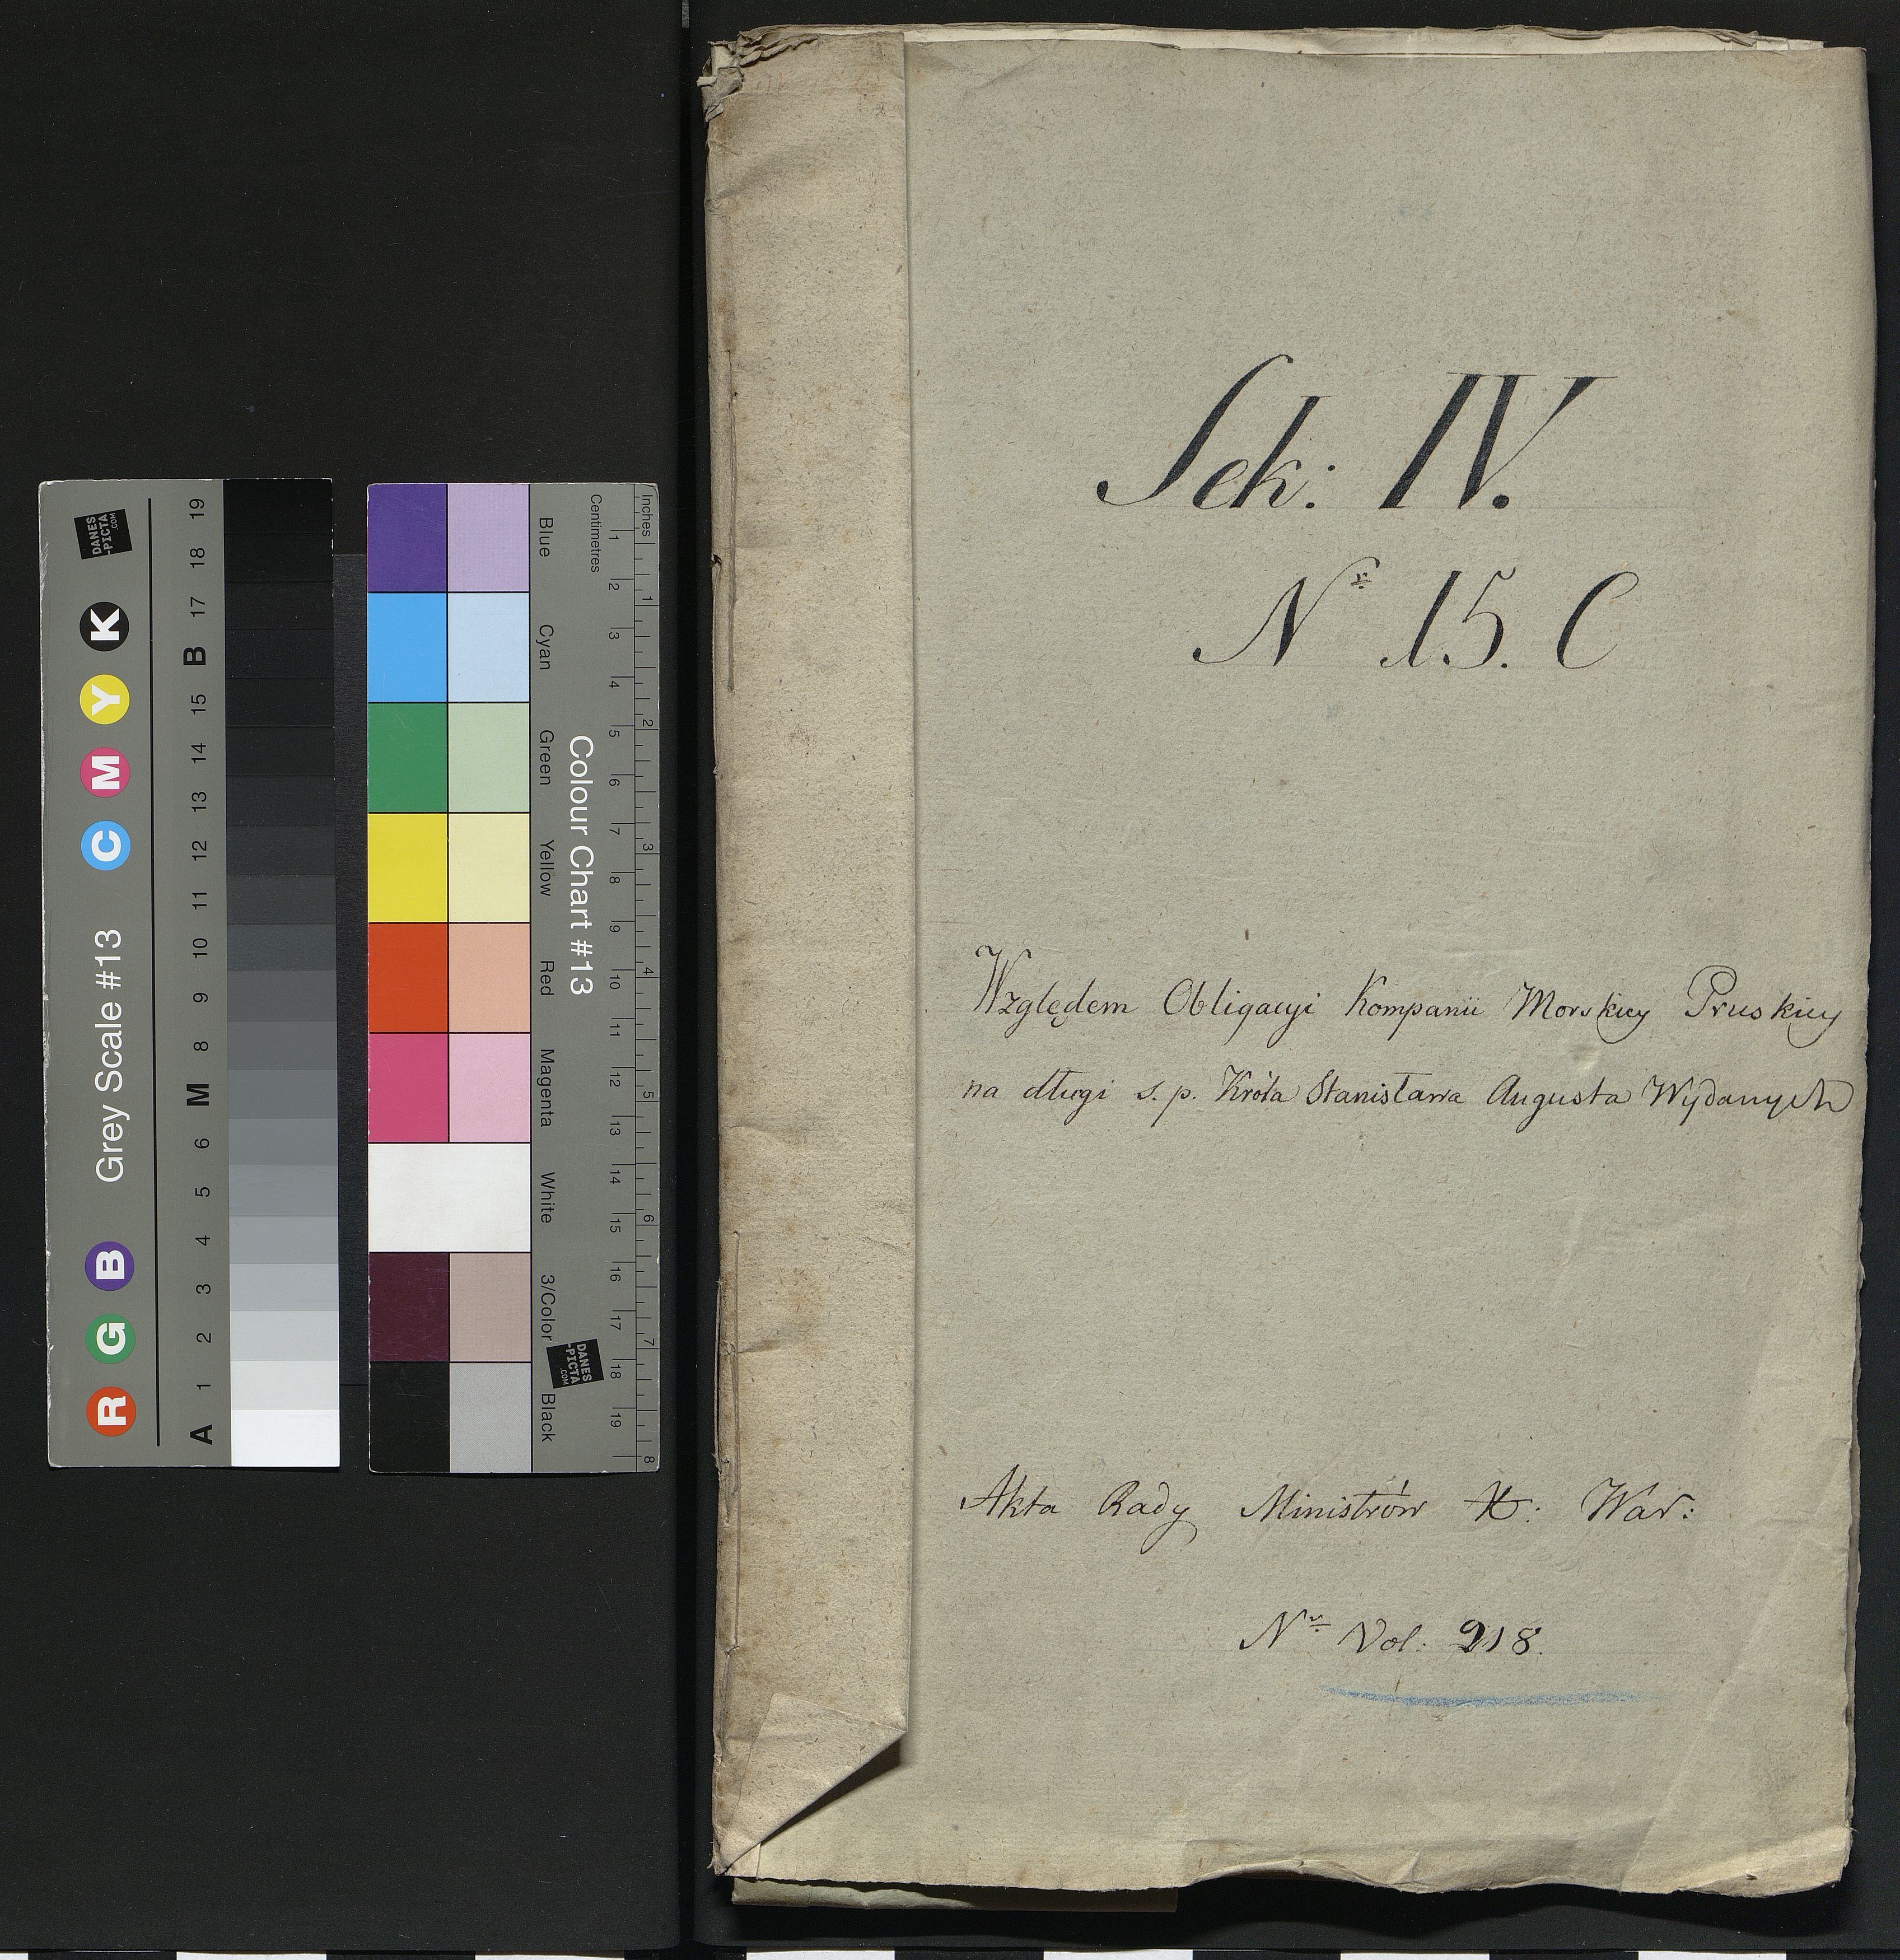 Sek: IV.
Nr 15. C
Względem Obligacyi Kompanii Morskiey Pruskiey
na długi s. p. Króla Stanisława Augusta Wydanych
Akta Rady Ministrów X: War:
Nr Vol: 218.
Grey Scale #13
R G B C M Y K
A 1 2 3 4 5 6 M 8 9 10 11 12 13 14 15 B 17 18 19
DANES
-PICTA
.COM
Colour Chart #13
Blue Cyan Green Yellow Red Magenta White 3/Color Black
Inches
1 2 3 4 5 6 7 8
Centimetres
1 2 3 4 5 6 7 8 9 10 11 12 13 14 15 16 17 18 19
DANES
-PICTA
.COM